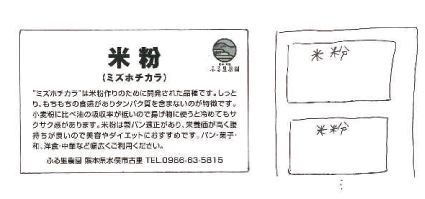 米粉
(ミズホチカラ)
ふる里農園
"ミズホチカラ"は米粉作りのために開発された品種です。しっと
り、もちもちの食感がありタンパク質を含まないのが特徴です。
小麦粉に比べ油の吸収率が低いので揚げ物に使うと冷めてもサ
クサク感があります。米粉は製パン適正があり、栄養価が高く腹
持ちが良いので美容やダイエットにおすすめです。パン・菓子・
和、洋食・中華など幅広くご利用ください。
ふる里農園 熊本県水俣市古里 TEL.0966-63-5815
米粉
米粉